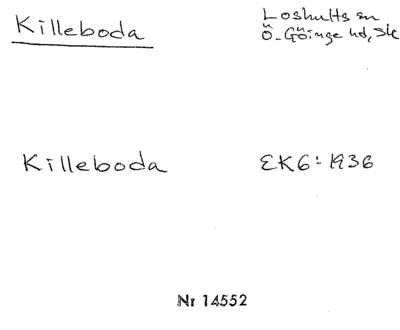 Killeboda
Loshults sn
Ö. Göinge hd, Sk
Killeboda
EK6: 1936
Nr 14552